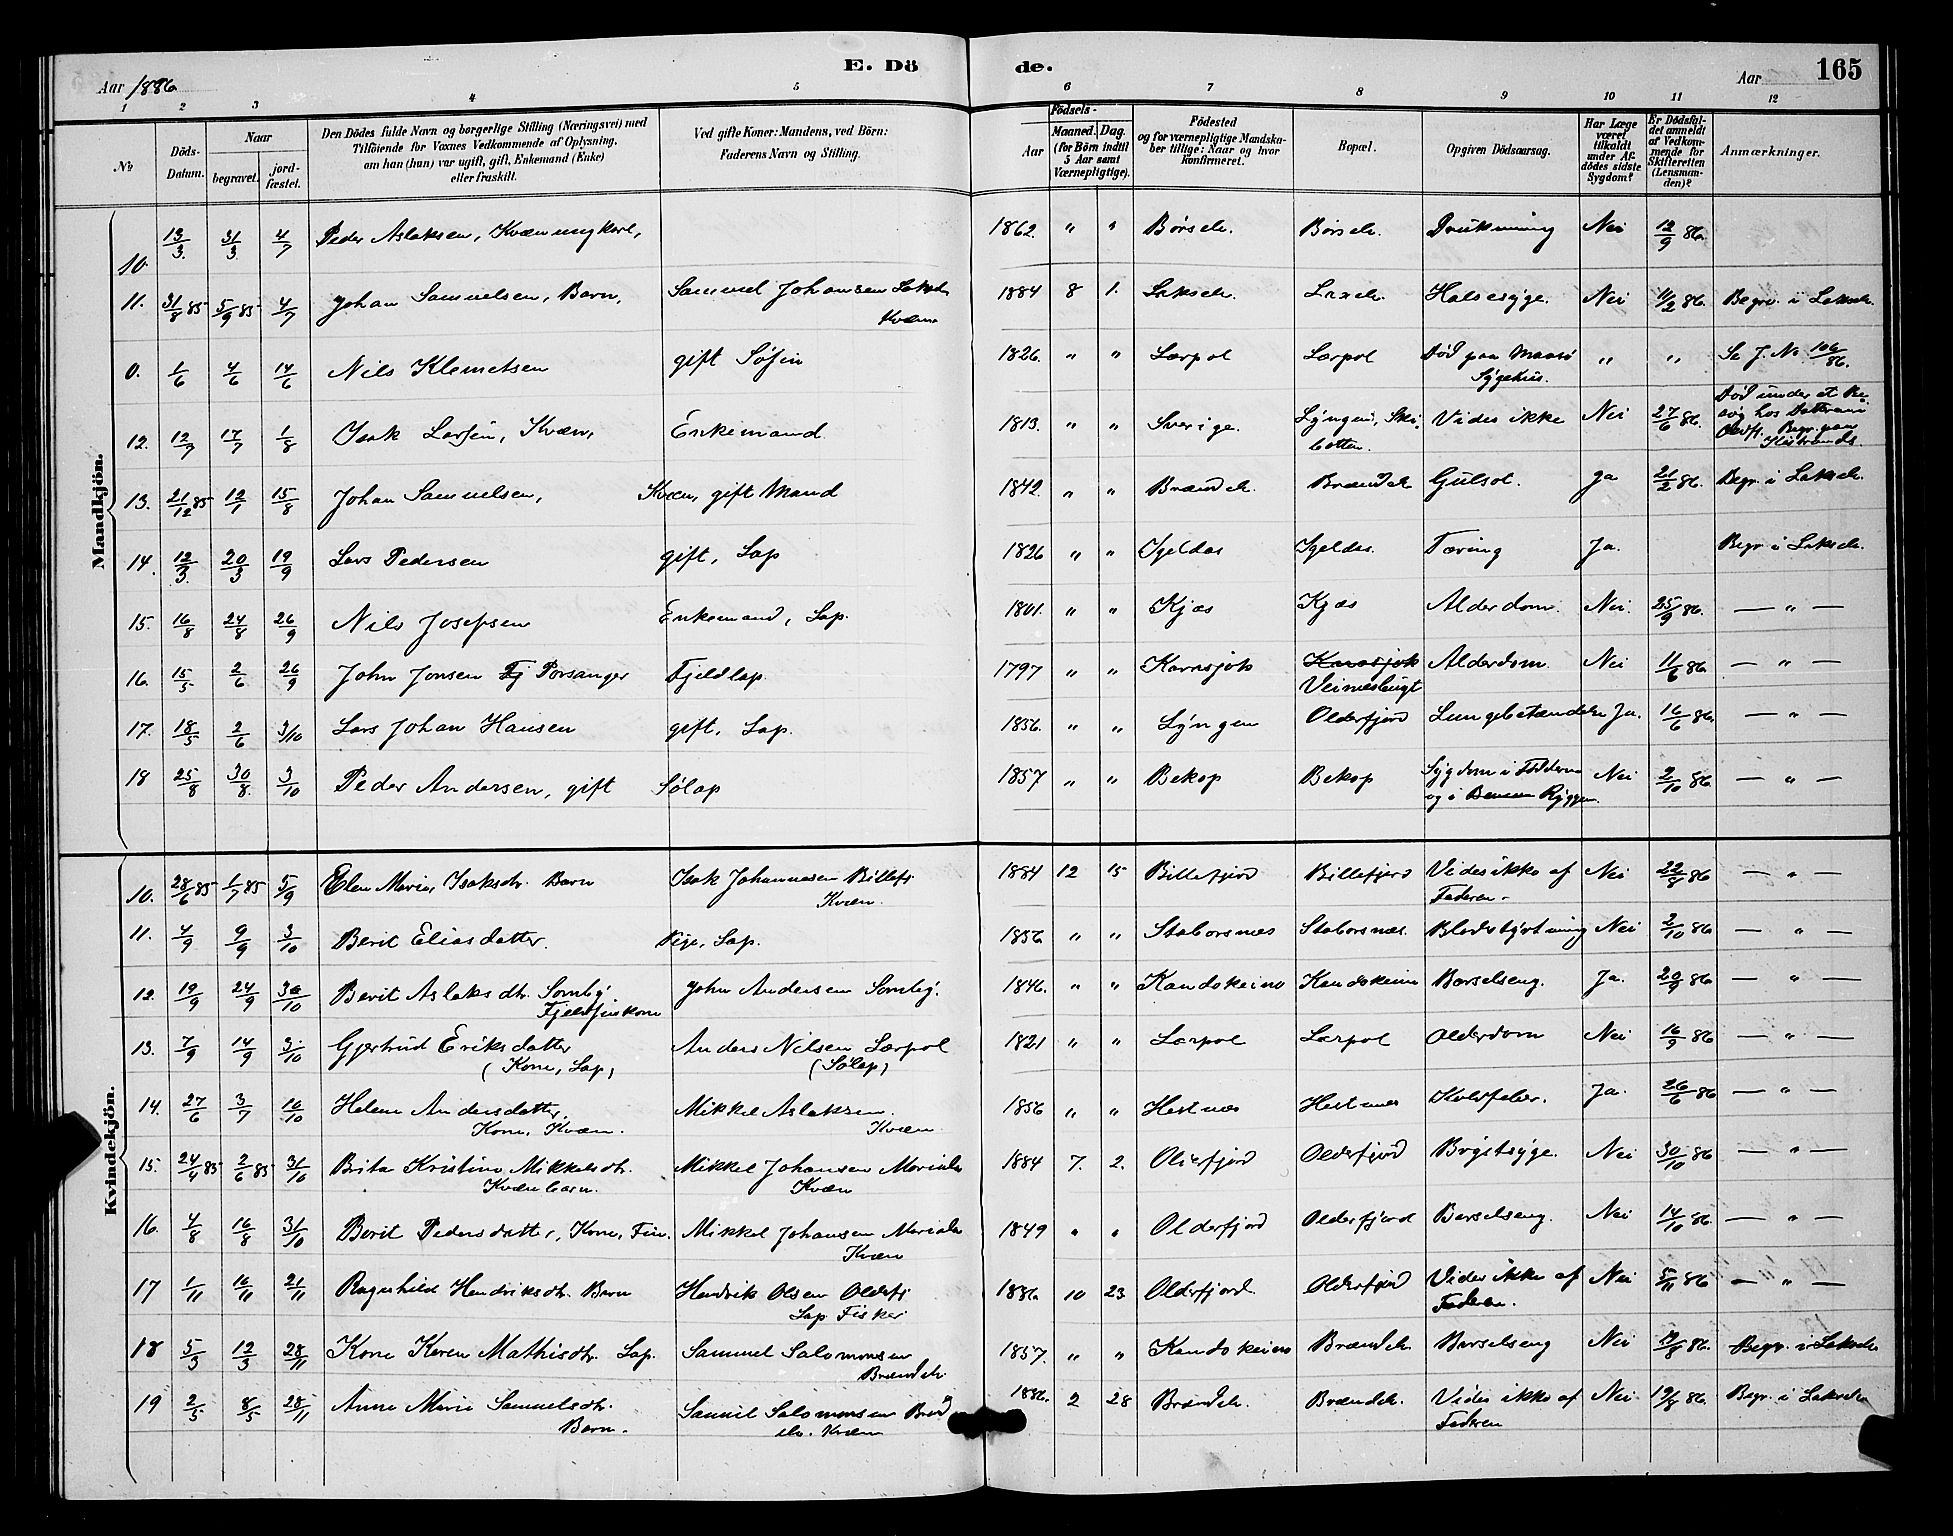 E. Dö de.
165
Aar 1886
Aar
1 2 3 4 5 6 7 8 9 10 11 12
№
Döds-Datum.
Naar
begravet.
jordfæstet.
Den Dödes fulde Navn og borgerlige Stilling (Næringsvei) med
Tilföiende for Voxnes Vedkommende af Oplysning,
om han (hun) var ugift, gift, Enkemand (Enke)
eller fraskilt.
Ved gifte Koner: Mandens, ved Börn:
Faderens Navn og Stilling.
Födsels-
Aar
Maaned. Dag.
(for Börn indtil
5 Aar samt
Værnepligtige).
Födested
og for værnepligtige Mandska-
ber tillige: Naar og hvor
konfirmeret.
Bopæl.
Opgiven Dödsaarsag.
Har Læge
været
tilkaldt
under Af-
dödes sidste
Sygdom?
Er Dödsfal-
det anmeldt
af Vedkom-
mende for
Skifteretten
(Lensman-
den)?
Anmærkninger.
Mandkjön.
10. 13/3 31/3 4/7 Peder Aslaksen, Kvæn ungkarl, 1862 " " Børselv. Børselv. Drukning Nei 12/9 86.
11. 31/8 85 5/9 85 4/7 Johan Samuelsen, Barn, Samuel Johansen Lakselv 1884 8 1. Lakselv. Laxelv. Halsesyge. Nei 11/2 86. Begr. i Lakselv.
Kvæn
0. 1/6 4/6 14/6 Nils Klemetsen gift Søfin 1826. " " Lærpol Lærpol Død paa Maasø " " Se J. No 106/86.
Sygehus.
12. 12/7 17/7 1/8 Isak Larsen, Kvæn, Enkemand 1813. " " Sverige. Lyngen, Ski- Vides ikke Nei 27/6 86. Død under et Be-
botten.
søg hos Datteren i
13. 21/12 85 12/1 15/8 Johan Samuelsen, Kvæn, gift Mand 1842. " " Brændelv Brændelv Gulsot. Ja 21/2 86. Begr. i Lakselv.
14. 12/3 20/3 19/9 Lars Pedersen gift, Lap 1826 " " Igeldas Igeldas. Tæring Ja. Begr i Lakselv.
15. 16/8 24/8 26/9 Nils Josefsen Enkemand, Lap. 1801. " " Kjæs Kjæs Alderdom. Nei. 25/9 86. — " —
16. 15/5 2/6 26/9 John Jonsen Fj Porsanger Fjeldlap. 1797 " " Karasjok Karasjok Alderdom Nei 11/6 86 — " —
Veinesbugt
17. 18/5 2/6 3/10 Lars Johan Hansen gift, Lap. 1856. " " Lyngen Olderfjord Lungebetændelse Ja. 16/6 86. — " —
18 25/8 30/8. 3/10 Peder Andersen, gift Sølap 1857 " " Bekop Bekop Sygdom i Fødderne Nei 2/10 86. — " —
og i Benene Ryggen.
Kvindekjön.
10. 28/6 85 1/7 85 5/9 Elen Marie, Isaksdr. Barn Isak Johannesen Billefj. 1884 12 15 Billefjord Billefjord Vides ikke af Nei 22/8 86 — " —
Kvæn.
Faderen.
11. 4/9 9/9 3/10 Berit Eliasdatter. Pige, Lap. 1856 " " Staborsnæs Staborsnæs. Blodstyrtning Nei 2/10 86 — " —
12. 19/9 24/9 30/10 Berit Aslaksdtr. Somby John Andersen Somby. 1846. " " Kaudokeino Kaudokeino Barselseng. Ja. 20/9 86 — " —
Fjeldfinkone
13. 7/9 14/9 3/10 Gjertrud Eriksdatter Anders Nilsen Lærpol 1821 " " Lærpol Lærpol Alderdom Nei 16/9 86 — " —
(Kone, Lap)
(Sølap)
14. 27/6 3/7 10/10 Helene Andersdatter, Mikkel Aslaksen. 1856 " " Hestnæs Hestnæs Koldfeber. Ja. 26/6 86 — " —
Kone, Kvæn.
Kvæn
15. 24/4 85 2/6 85 31/10 Brita Kristine Mikkelsdtr. Mikkel Johansen 1884 7. 2. Olderfjord Olderfjord Brystsyge. Nei 30/10 86 — " —
Kvænbarn.
Kvæn
16. 4/8 16/8 31/10 Berit Pedersdatter, Kone, Fin. Mikkel Johansen 1849 " " Olderfjord Olderfjord Barselseng. Nei 14/10 86. — " —
Kvæn
17 1/11 16/11 21/11 Ragnhild Hendriksdtr. Barn Hendrik Olsen Olderfj 1886 10 23 Olderfjord. Olderfjord Vides ikke af Nei 5/11 86 — " —
Lap Fisker
Faderen.
18 5/3 12/3 28/11 Kone Karen Mathisdtr. Lap. Samuel Salomonsen 1857. " " Kaudokeino Brændelv. Barselseng Nei 86. Begr. i Lakselv
Brændelv.
19 2/5 8/5 28/11 Anne Marie Samuelsdtr. Samuel Salomonsen Brænd 1886. 2 28 Brændelv. Brændelv. Vides ikke af Nei 19/8 86. Begr. i Lakselv
Barn.
elv. Kvæn
Faderen